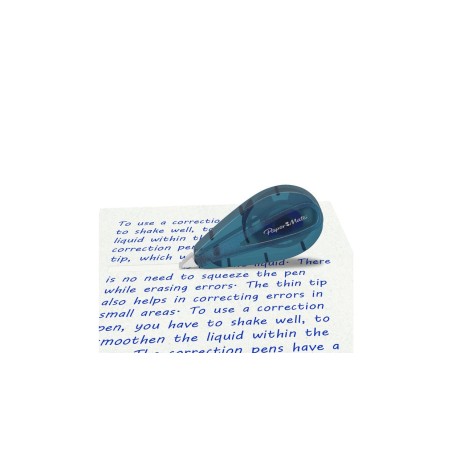 To use a correctio
to shake well, to
liquid within th
correction pen
tip, which liquid. There
is no need to squeeze the pen
while erasing errors. The thin tip
also helps in correcting errors in
small areas. To use a correction
pen, you have to shake well, to
moothen the liquid within the
The correction pens have a
Paper Mate